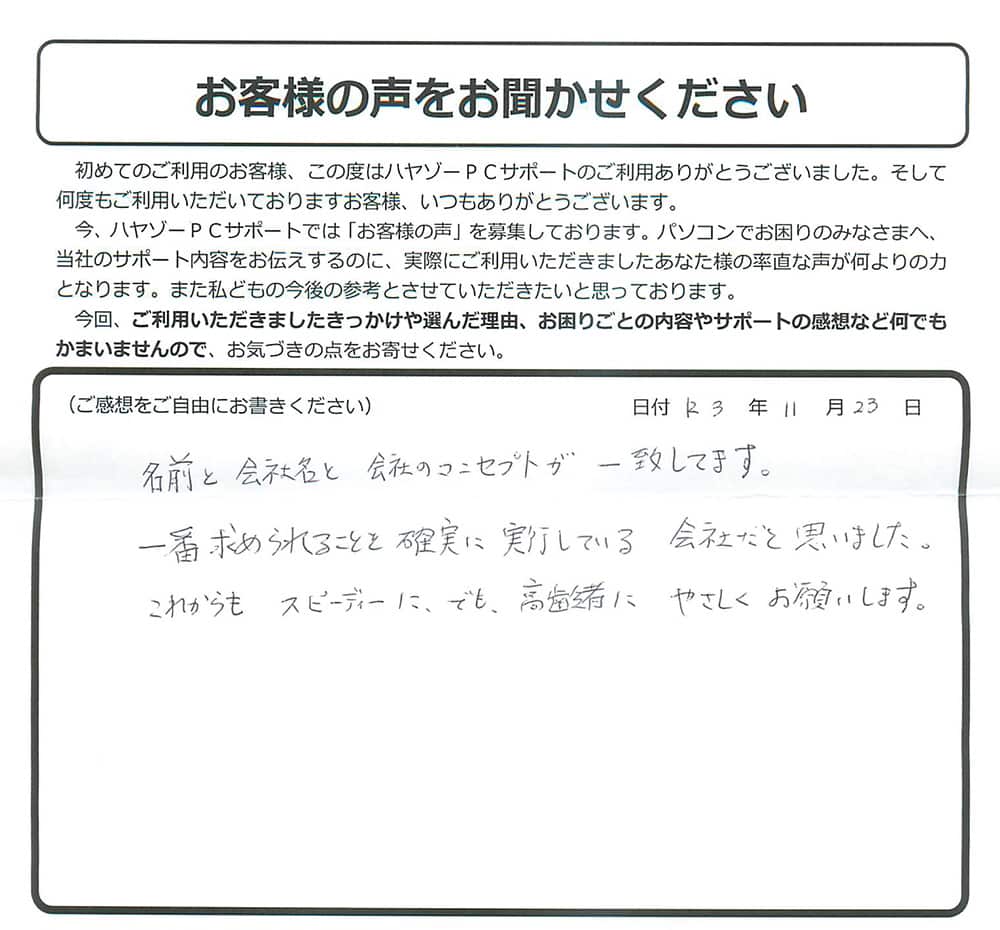 お客様の声をお聞かせください
初めてのご利用のお客様、この度はハヤゾーPCサポートのご利用ありがとうございました。そして
何度もご利用いただいておりますお客様、いつもありがとうございます。
今、ハヤゾーPCサポートでは「お客様の声」を募集しております。パソコンでお困りのみなさまへ、
当社のサポート内容をお伝えするのに、実際にご利用いただきましたあなた様の率直な声が何よりの力
となります。また私どもの今後の参考とさせていただきたいと思っております。
今回、ご利用いただきましたきっかけや選んだ理由、お困りごとの内容やサポートの感想など何でも
かまいませんので、お気づきの点をお寄せください。
（ご感想をご自由にお書きください） 日付 R3 年 11 月 23 日
名前と 会社名と 会社のコンセプトが 一致してます。
一番求められることを確実に 実行している 会社だと思いました。
これからも スピーディーに、でも、高齢者に やさしくお願いします。